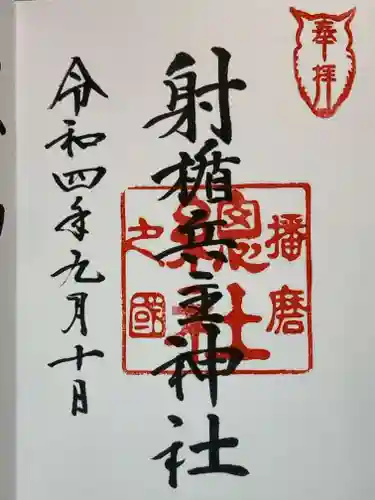 奉拝
播磨
之國
總社
射楯兵主神社
令和四年九月十日